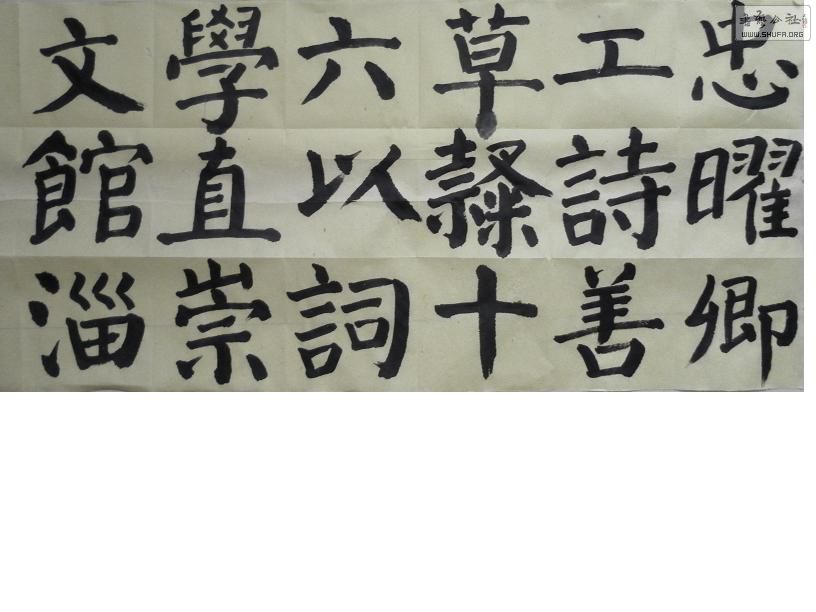 忠曜卿
工詩善
草隸十
六以詞
學直崇
文館淄
書藝公社
WWW.SHUFA.ORG